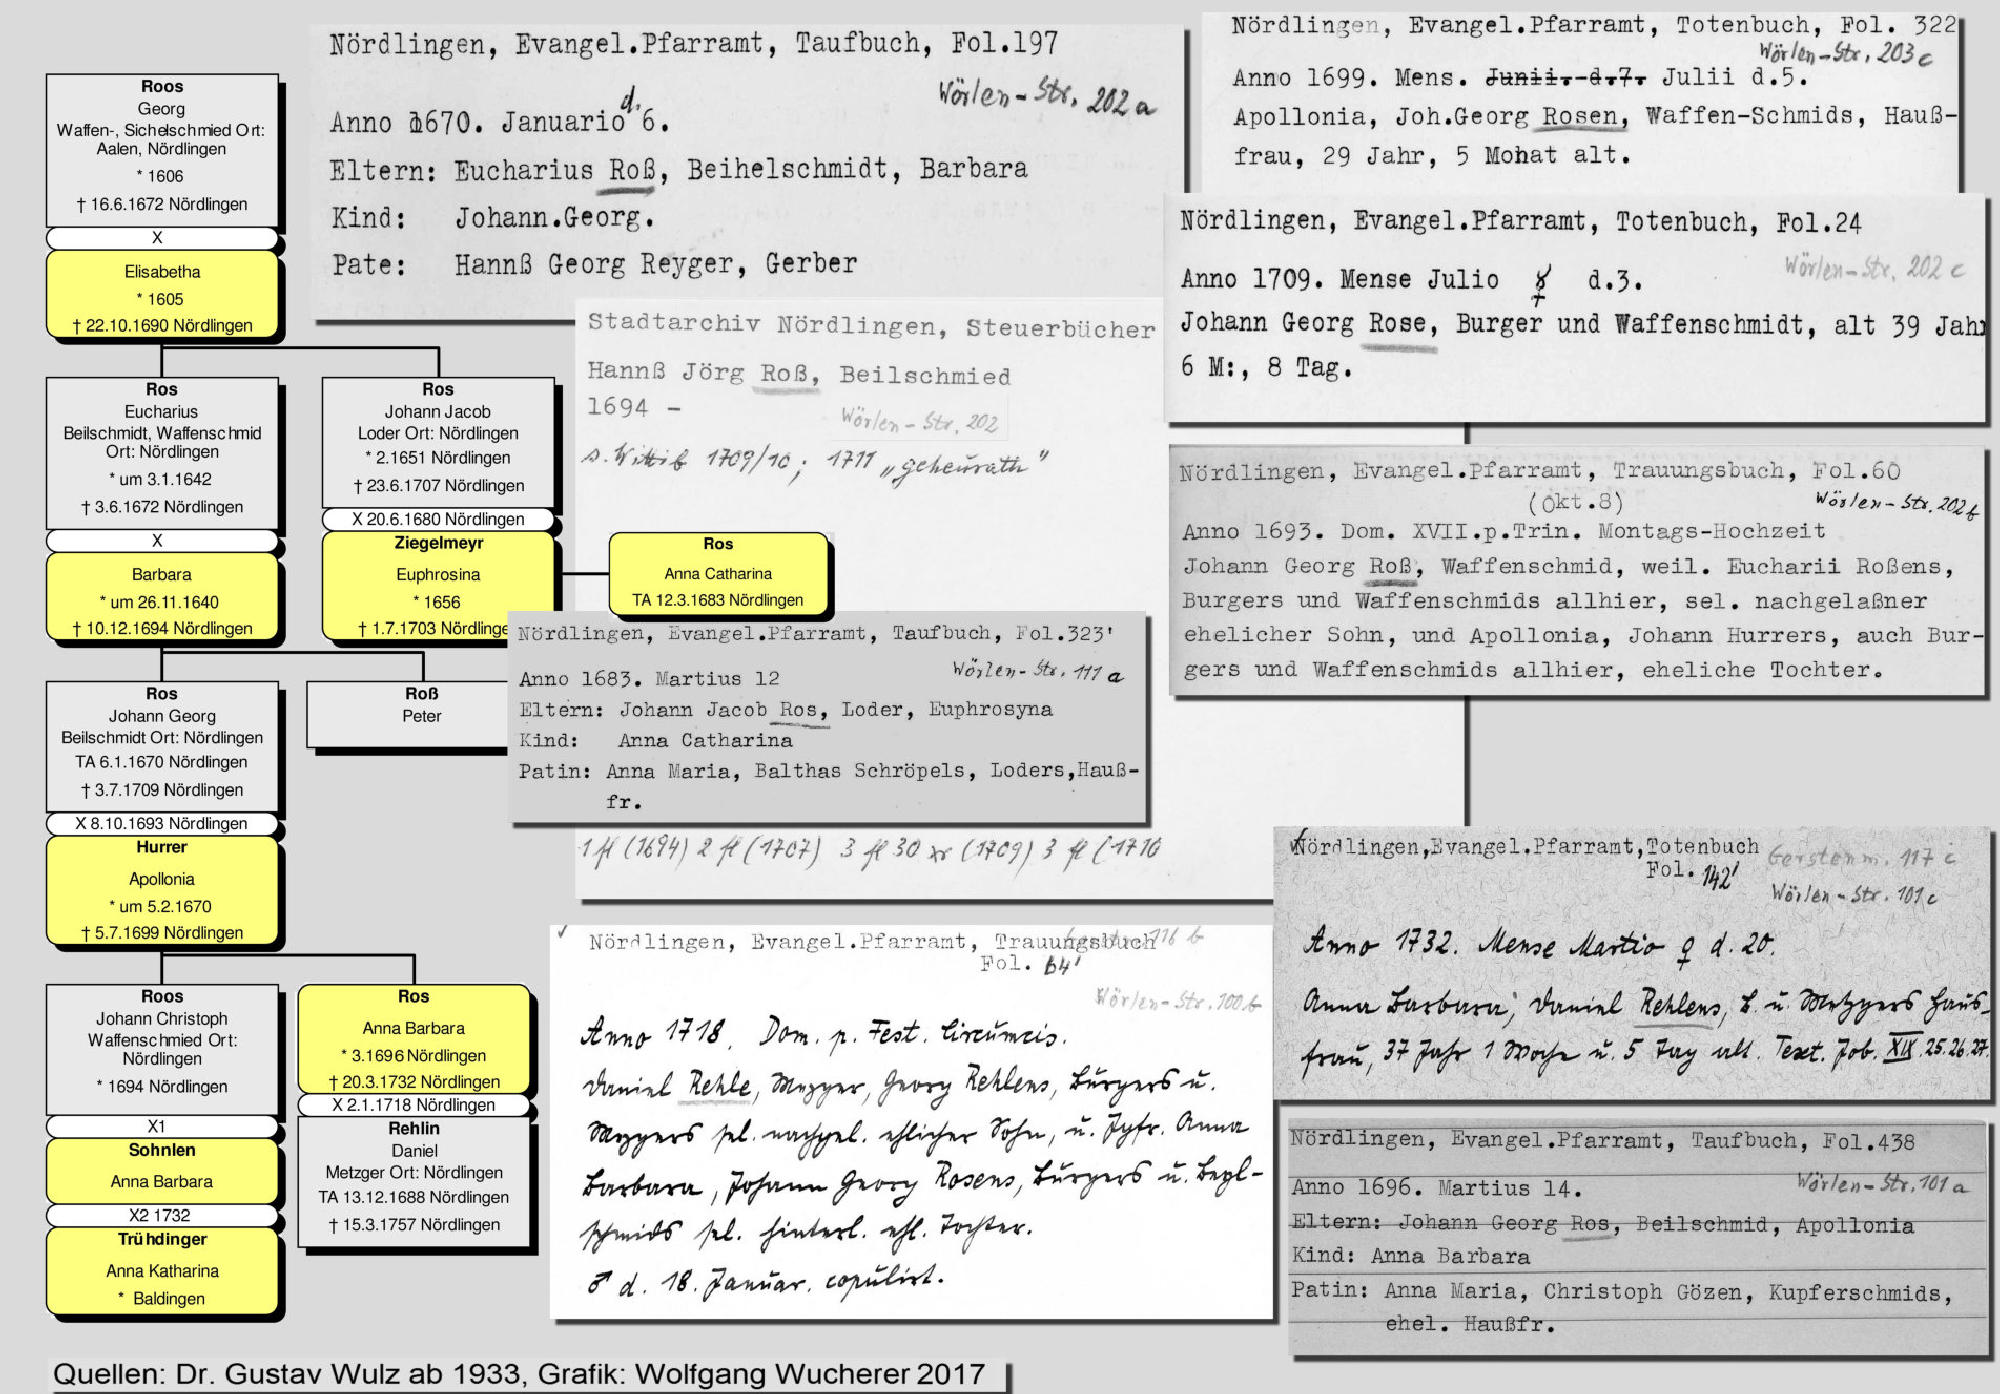 Roos
Georg
Waffen-, Sichelschmied Ort:
Aalen, Nördlingen
* 1606
† 16.6.1672 Nördlingen
X
Elisabetha
* 1605
† 22.10.1690 Nördlingen
Ros
Eucharius
Beilschmidt, Waffenschmid
Ort: Nördlingen
* um 3.1.1642
† 3.6.1672 Nördlingen
X
Barbara
* um 26.11.1640
† 10.12.1694 Nördlingen
Ros
Johann Jacob
Loder Ort: Nördlingen
* 2.1651 Nördlingen
† 23.6.1707 Nördlingen
X 20.6.1680 Nördlingen
Ziegelmeyr
Euphrosina
* 1656
† 1.7.1703 Nördlinge
Ros
Anna Catharina
TA 12.3.1683 Nördlingen
Ros
Johann Georg
Beilschmidt Ort: Nördlingen
TA 6.1.1670 Nördlingen
† 3.7.1709 Nördlingen
X 8.10.1693 Nördlingen
Hurrer
Apollonia
* um 5.2.1670
† 5.7.1699 Nördlingen
Roß
Peter
Roos
Johann Christoph
Waffenschmied Ort:
Nördlingen
* 1694 Nördlingen
X1
Sohnlen
Anna Barbara
X2 1732
Trühdinger
Anna Katharina
* Baldingen
Ros
Anna Barbara
* 3.1696 Nördlingen
† 20.3.1732 Nördlingen
X 2.1.1718 Nördlingen
Rehlin
Daniel
Metzger Ort: Nördlingen
TA 13.12.1688 Nördlingen
† 15.3.1757 Nördlingen
Nördlingen, Evangel.Pfarramt, Taufbuch, Fol.197
Wörlen-Str. 202 a
d.
Anno 1670. Januario 6.
Eltern: Eucharius Roß, Beihelschmidt, Barbara
Kind: Johann.Georg.
Pate: Hannß Georg Reyger, Gerber
Nördlingen, Evangel.Pfarramt, Totenbuch, Fol. 322
Wörlen-Str. 203 c
Anno 1699. Mens. Junii. d.7. Julii d.5.
Apollonia, Joh.Georg Rosen, Waffen-Schmids, Hauß-
frau, 29 Jahr, 5 Mohat alt.
Nördlingen, Evangel.Pfarramt, Totenbuch, Fol.24
Wörlen-Str. 202 c
Anno 1709. Mense Julio ☿ d.3.
Johann Georg Rose, Burger und Waffenschmidt, alt 39 Jahr
6 M:, 8 Tag.
Stadtarchiv Nördlingen, Steuerbücher
Hannß Jörg Roß, Beilschmied
1694 -
Wörlen-Str. 202
s. Wittib 1709/10; 1711 „geheurath“
1 fl (1694) 2 fl (1707) 3 fl 30 xr (1709) 3 fl (1710
Nördlingen, Evangel.Pfarramt, Trauungsbuch, Fol.60
(Okt.8)
Wörlen-Str. 202b
Anno 1693. Dom. XVII.p.Trin. Montags-Hochzeit
Johann Georg Roß, Waffenschmid, weil. Eucharii Roßens,
Burgers und Waffenschmids allhier, sel. nachgelaßner
ehelicher Sohn, und Apollonia, Johann Hurrers, auch Bur-
gers und Waffenschmids allhier, eheliche Tochter.
Nördlingen, Evangel.Pfarramt, Taufbuch, Fol.323'
Wörlen-Str. 111 a
Anno 1683. Martius 12
Eltern: Johann Jacob Ros, Loder, Euphrosyna
Kind: Anna Catharina
Patin: Anna Maria, Balthas Schröpels, Loders,Hauß-
fr.
Nördlingen, Evangel.Pfarramt, Trauungsbuch
116 b
Fol. 64'
Wörlen-Str. 100 b
Anno 1718. Dom. p. Fest. Circumcis.
Daniel Rehle, Mezger, Georg Rehlens, Burgers u.
Mezgers sel. nachgel. ehlicher Sohn, u. Jgfr. Anna
Barbara, Johann Georg Rosens, Burgers u. Beyl-
schmids sel. hinterl. ehl. Tochter.
♂ d. 18. Januar. copulirt.
Nördlingen,Evangel.Pfarramt,Totenbuch
Fol. 142'
Gerstenm. 117 c
Wörlen-Str. 101 c
Anno 1732. Mense Martio ♀ d. 20.
Anna Barbara, Daniel Rehlens, B. u. Metzgers Haus-
frau, 37 Jahr 1 Woche u. 5 Tag alt. Text. Job. XIX. 25.26.27.
Nördlingen, Evangel.Pfarramt, Taufbuch, Fol.438
Wörlen-Str. 101 a
Anno 1696. Martius 14.
Eltern: Johann Georg Ros, Beilschmid, Apollonia
Kind: Anna Barbara
Patin: Anna Maria, Christoph Gözen, Kupferschmids,
ehel. Haußfr.
Quellen: Dr. Gustav Wulz ab 1933, Grafik: Wolfgang Wucherer 2017